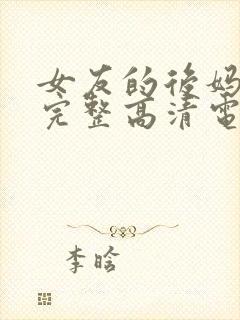 女友的后妈
完整高清电
李晗